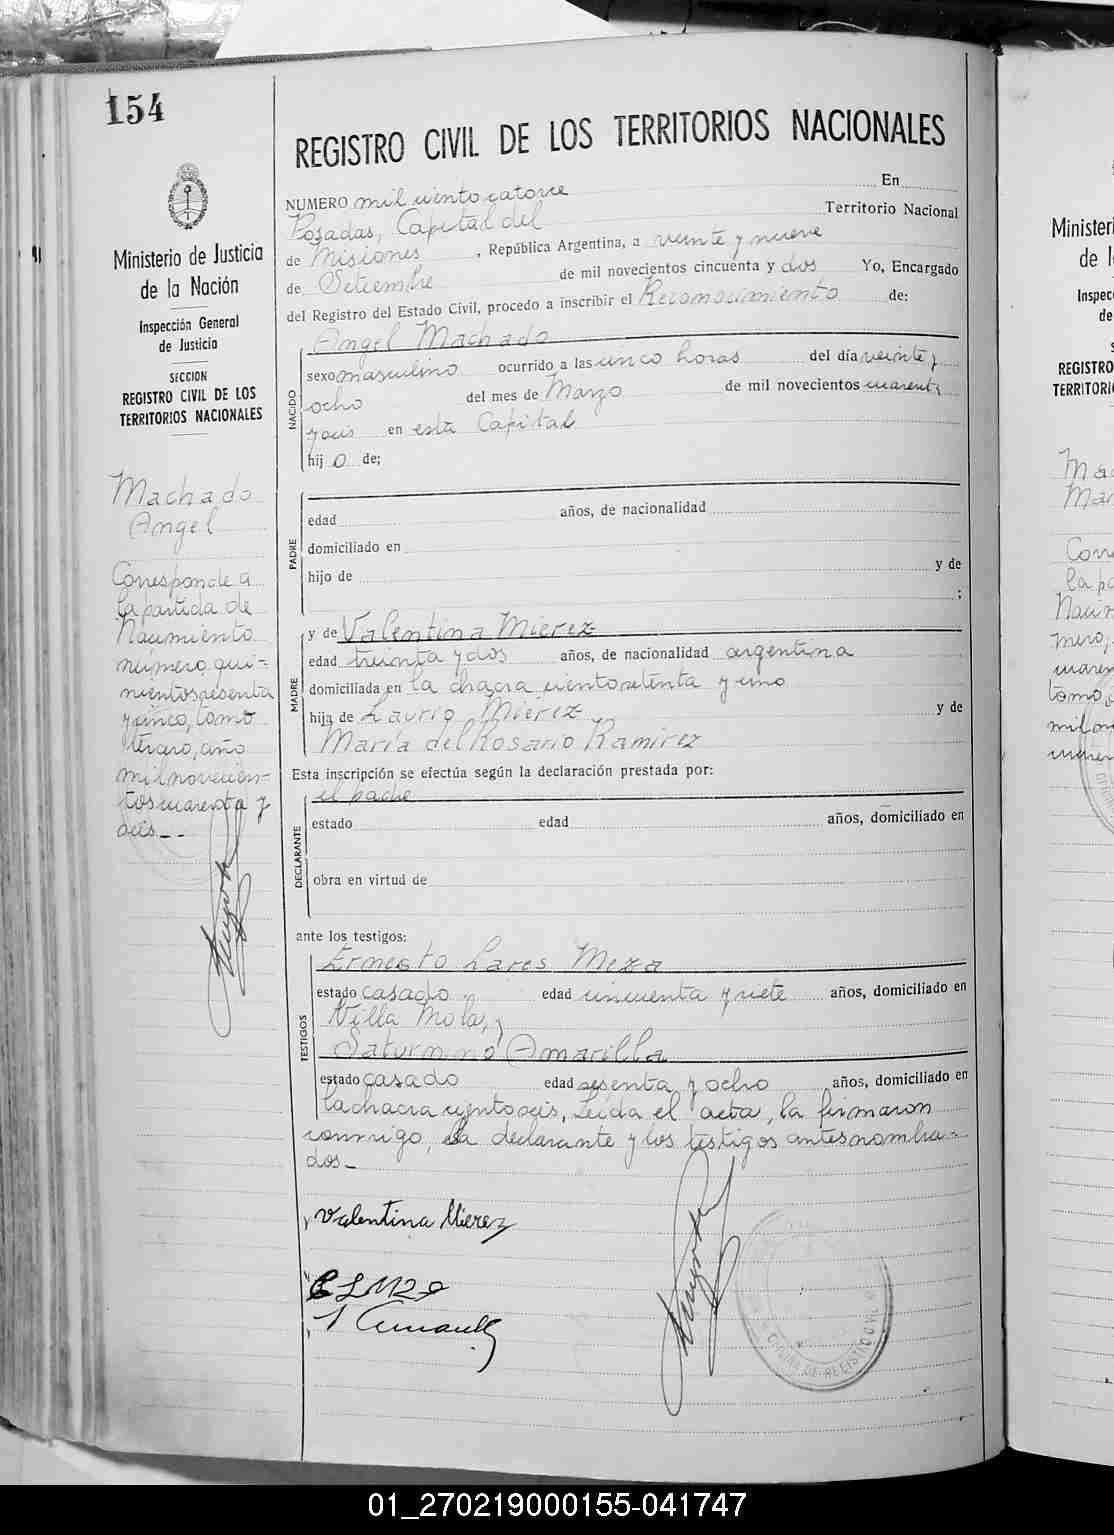 154
Ministerio de Justicia
de la Nación
Inspección General
de Justicia
SECCION
REGISTRO CIVIL DE LOS
TERRITORIOS NACIONALES
Machado
Angel
Corresponde a
la partida de
Nacimiento
número qui-
nientos sesenta
y cinco, tomo
tercero, año
mil novecien-
tos cuarenta y
seis_ _
REGISTRO CIVIL DE LOS TERRITORIOS NACIONALES
NUMERO mil ciento catorce En
Posadas, Capital del Territorio Nacional
de Misiones , República Argentina, a veinte y nueve
de Setiembre de mil novecientos cincuenta y dos Yo, Encargado
del Registro del Estado Civil, procedo a inscribir el Reconocimiento de:
NACIDO
Angel Machado
sexo masculino ocurrido a las cinco horas del día veinte y
ocho del mes de Marzo de mil novecientos cuarenta
y seis en esta Capital
hij o de;
PADRE
edad años, de nacionalidad
domiciliado en
hijo de y de
;
MADRE
y de Valentina Mierez
edad treinta y dos años, de nacionalidad argentina
domiciliada en la chacra ciento setenta y uno
hija de Laurio Mierez y de
María del Rosario Ramirez
Esta inscripción se efectúa según la declaración prestada por:
DECLARANTE
el padre
estado edad años, domiciliado en
obra en virtud de
ante los testigos:
TESTIGOS
Ernesto Lares Meza
estado casado edad cincuenta y siete años, domiciliado en
Villa Mola, y
Saturnino Amarilla
estado casado edad sesenta y ocho años, domiciliado en
la chacra ciento seis, Leída el acta, la firmaron
conmigo, la declarante y los testigos antes nombra-
dos_
Valentina Mierez
OFICINA DE REGISTRO CIVIL
Minister
de l
Inspec
de
REGISTRO
TERRITORI
01_270219000155-041747